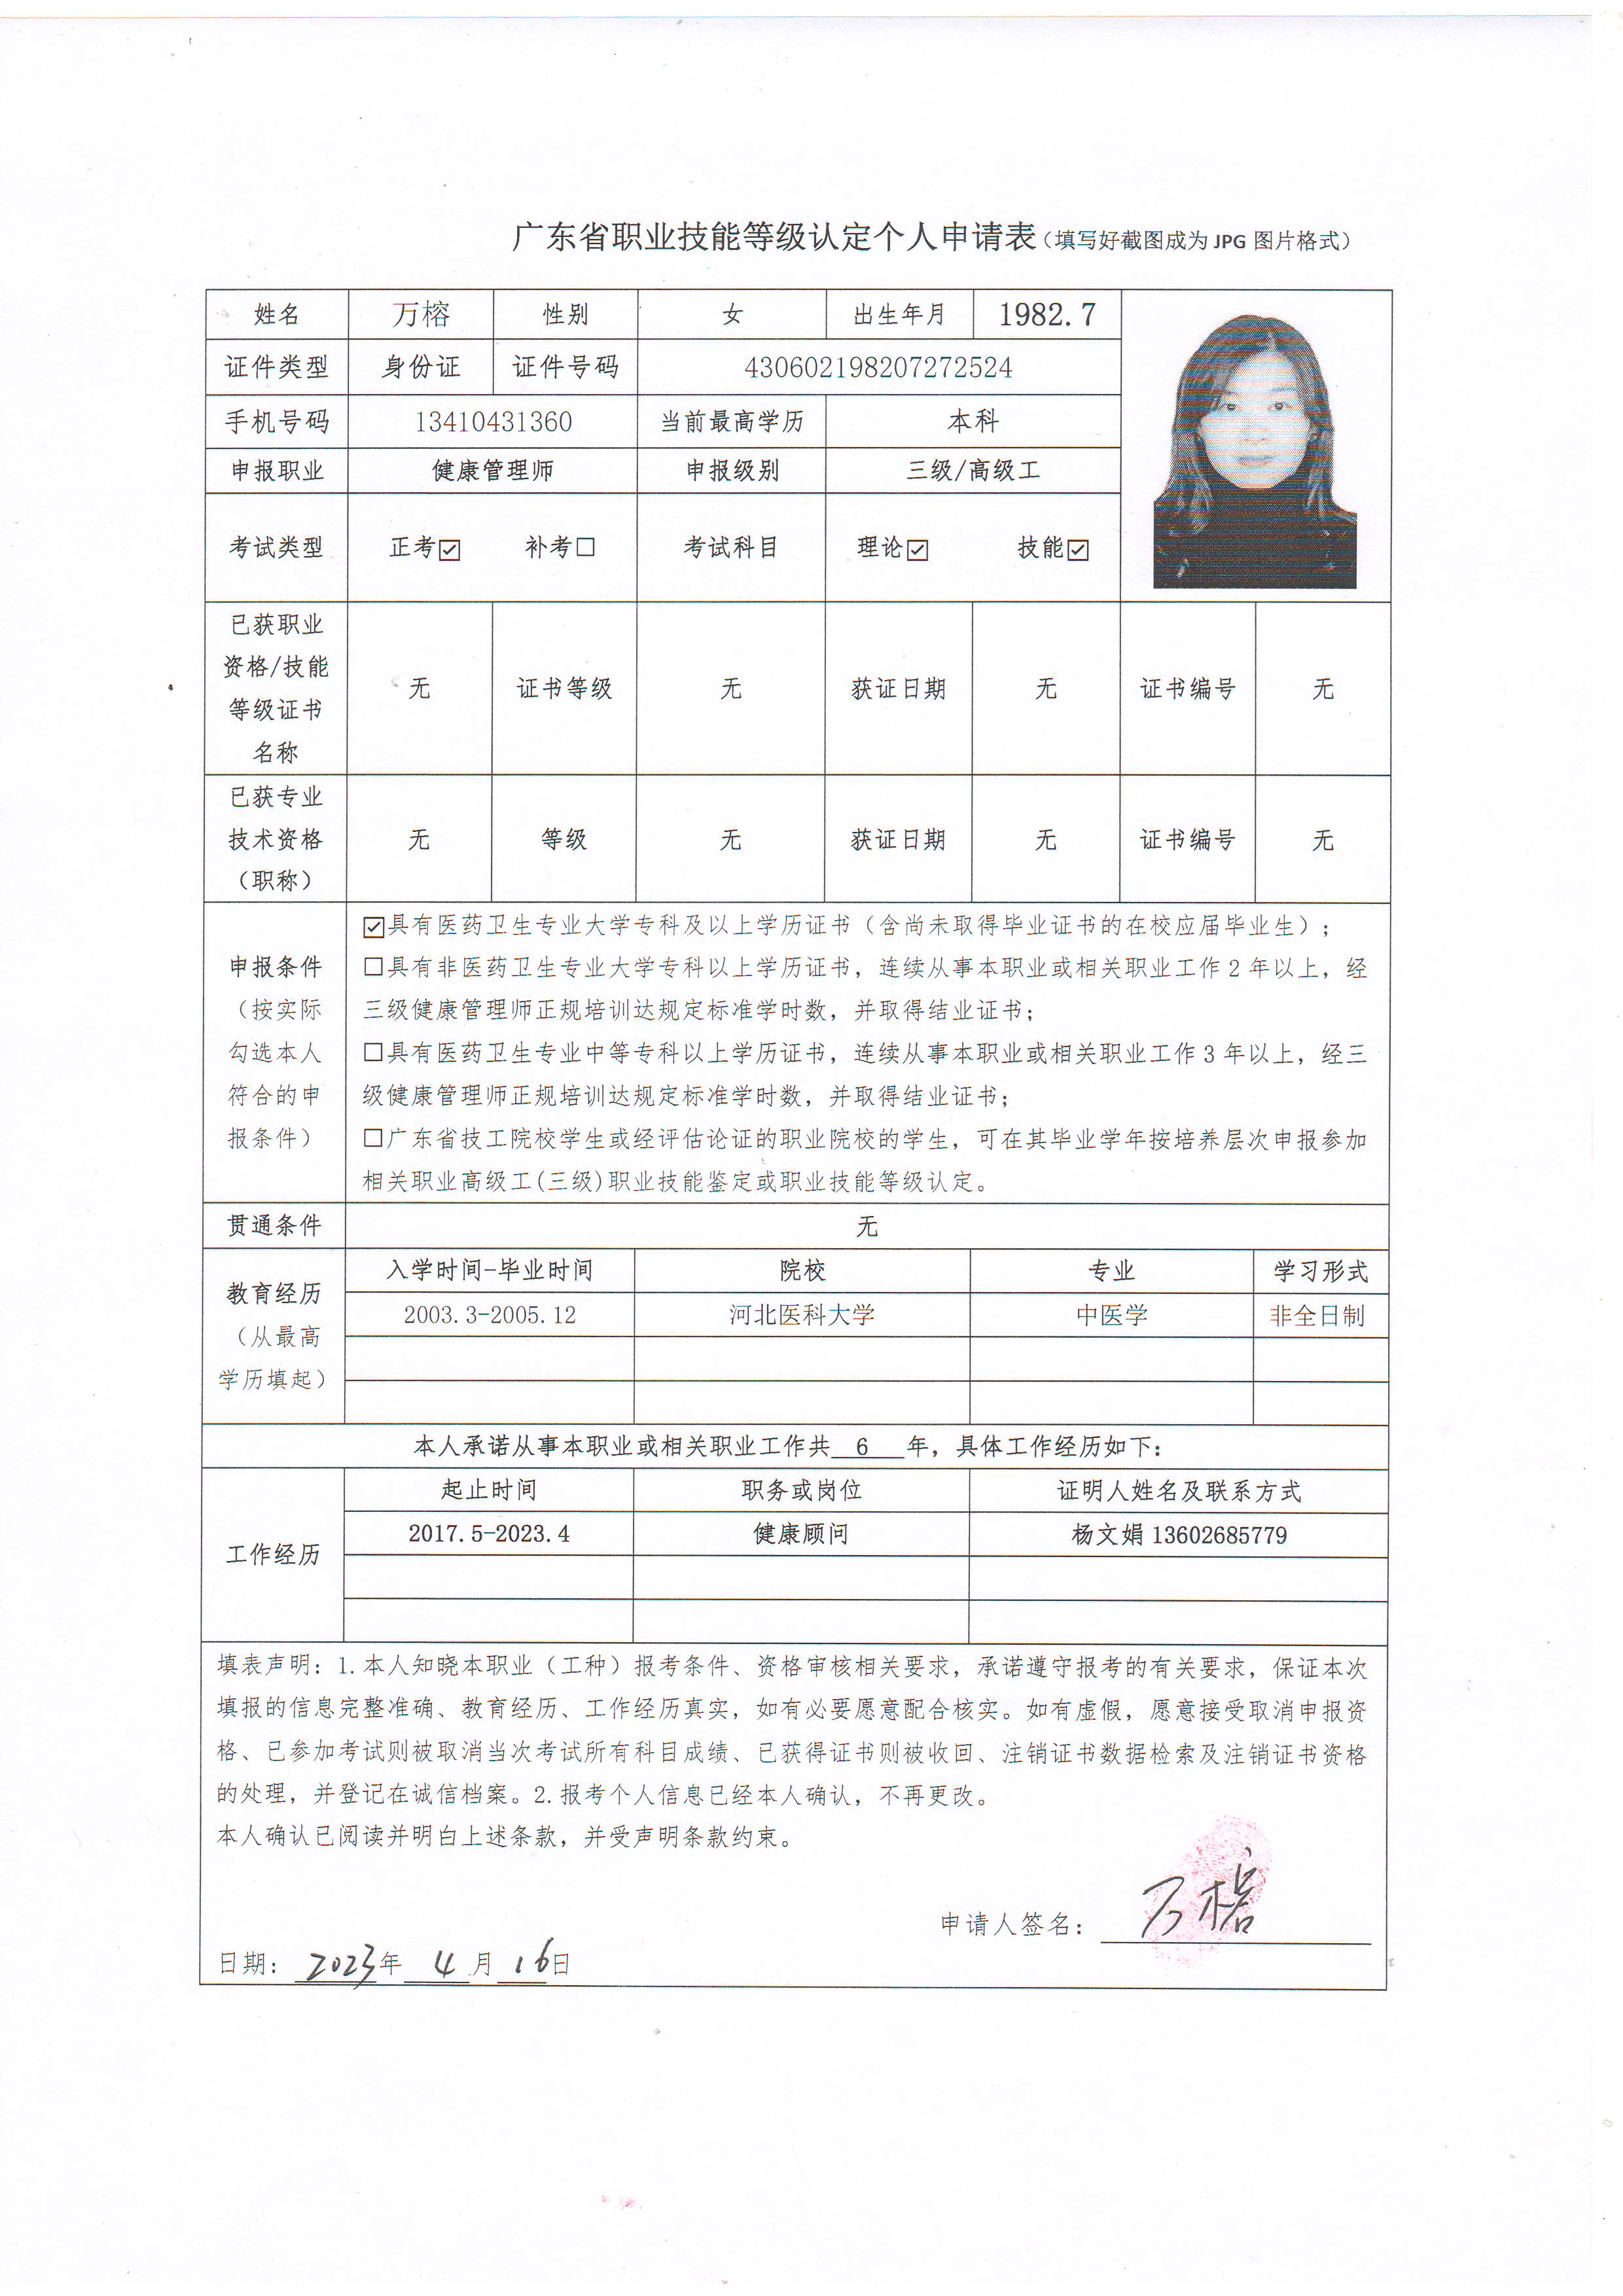 广东省职业技能等级认定个人申请表（填写好截图成为 JPG 图片格式）
姓名 万榕 性别 女 出生年月 1982.7
证件类型 身份证 证件号码 430602198207272524
手机号码 13410431360 当前最高学历 本科
申报职业 健康管理师 申报级别 三级/高级工
考试类型 正考☑ 补考☐ 考试科目 理论☑ 技能☑
已获职业
资格/技能
等级证书
名称
无 证书等级 无 获证日期 无 证书编号 无
已获专业
技术资格
（职称）
无 等级 无 获证日期 无 证书编号 无
申报条件
（按实际
勾选本人
符合的申
报条件）
☑具有医药卫生专业大学专科及以上学历证书（含尚未取得毕业证书的在校应届毕业生）；
☐具有非医药卫生专业大学专科以上学历证书，连续从事本职业或相关职业工作 2 年以上，经
三级健康管理师正规培训达规定标准学时数，并取得结业证书；
☐具有医药卫生专业中等专科以上学历证书，连续从事本职业或相关职业工作 3 年以上，经三
级健康管理师正规培训达规定标准学时数，并取得结业证书；
☐广东省技工院校学生或经评估论证的职业院校的学生，可在其毕业学年按培养层次申报参加
相关职业高级工(三级)职业技能鉴定或职业技能等级认定。
贯通条件 无
教育经历
（从最高
学历填起）
入学时间-毕业时间 院校 专业 学习形式
2003.3-2005.12 河北医科大学 中医学 非全日制
本人承诺从事本职业或相关职业工作共 6 年，具体工作经历如下：
工作经历
起止时间 职务或岗位 证明人姓名及联系方式
2017.5-2023.4 健康顾问 杨文娟 13602685779
填表声明：1.本人知晓本职业（工种）报考条件、资格审核相关要求，承诺遵守报考的有关要求，保证本次
填报的信息完整准确、教育经历、工作经历真实，如有必要愿意配合核实。如有虚假，愿意接受取消申报资
格、已参加考试则被取消当次考试所有科目成绩、已获得证书则被收回、注销证书数据检索及注销证书资格
的处理，并登记在诚信档案。2.报考个人信息已经本人确认，不再更改。
本人确认已阅读并明白上述条款，并受声明条款约束。
申请人签名：万榕
日期：2023年 4 月 16日